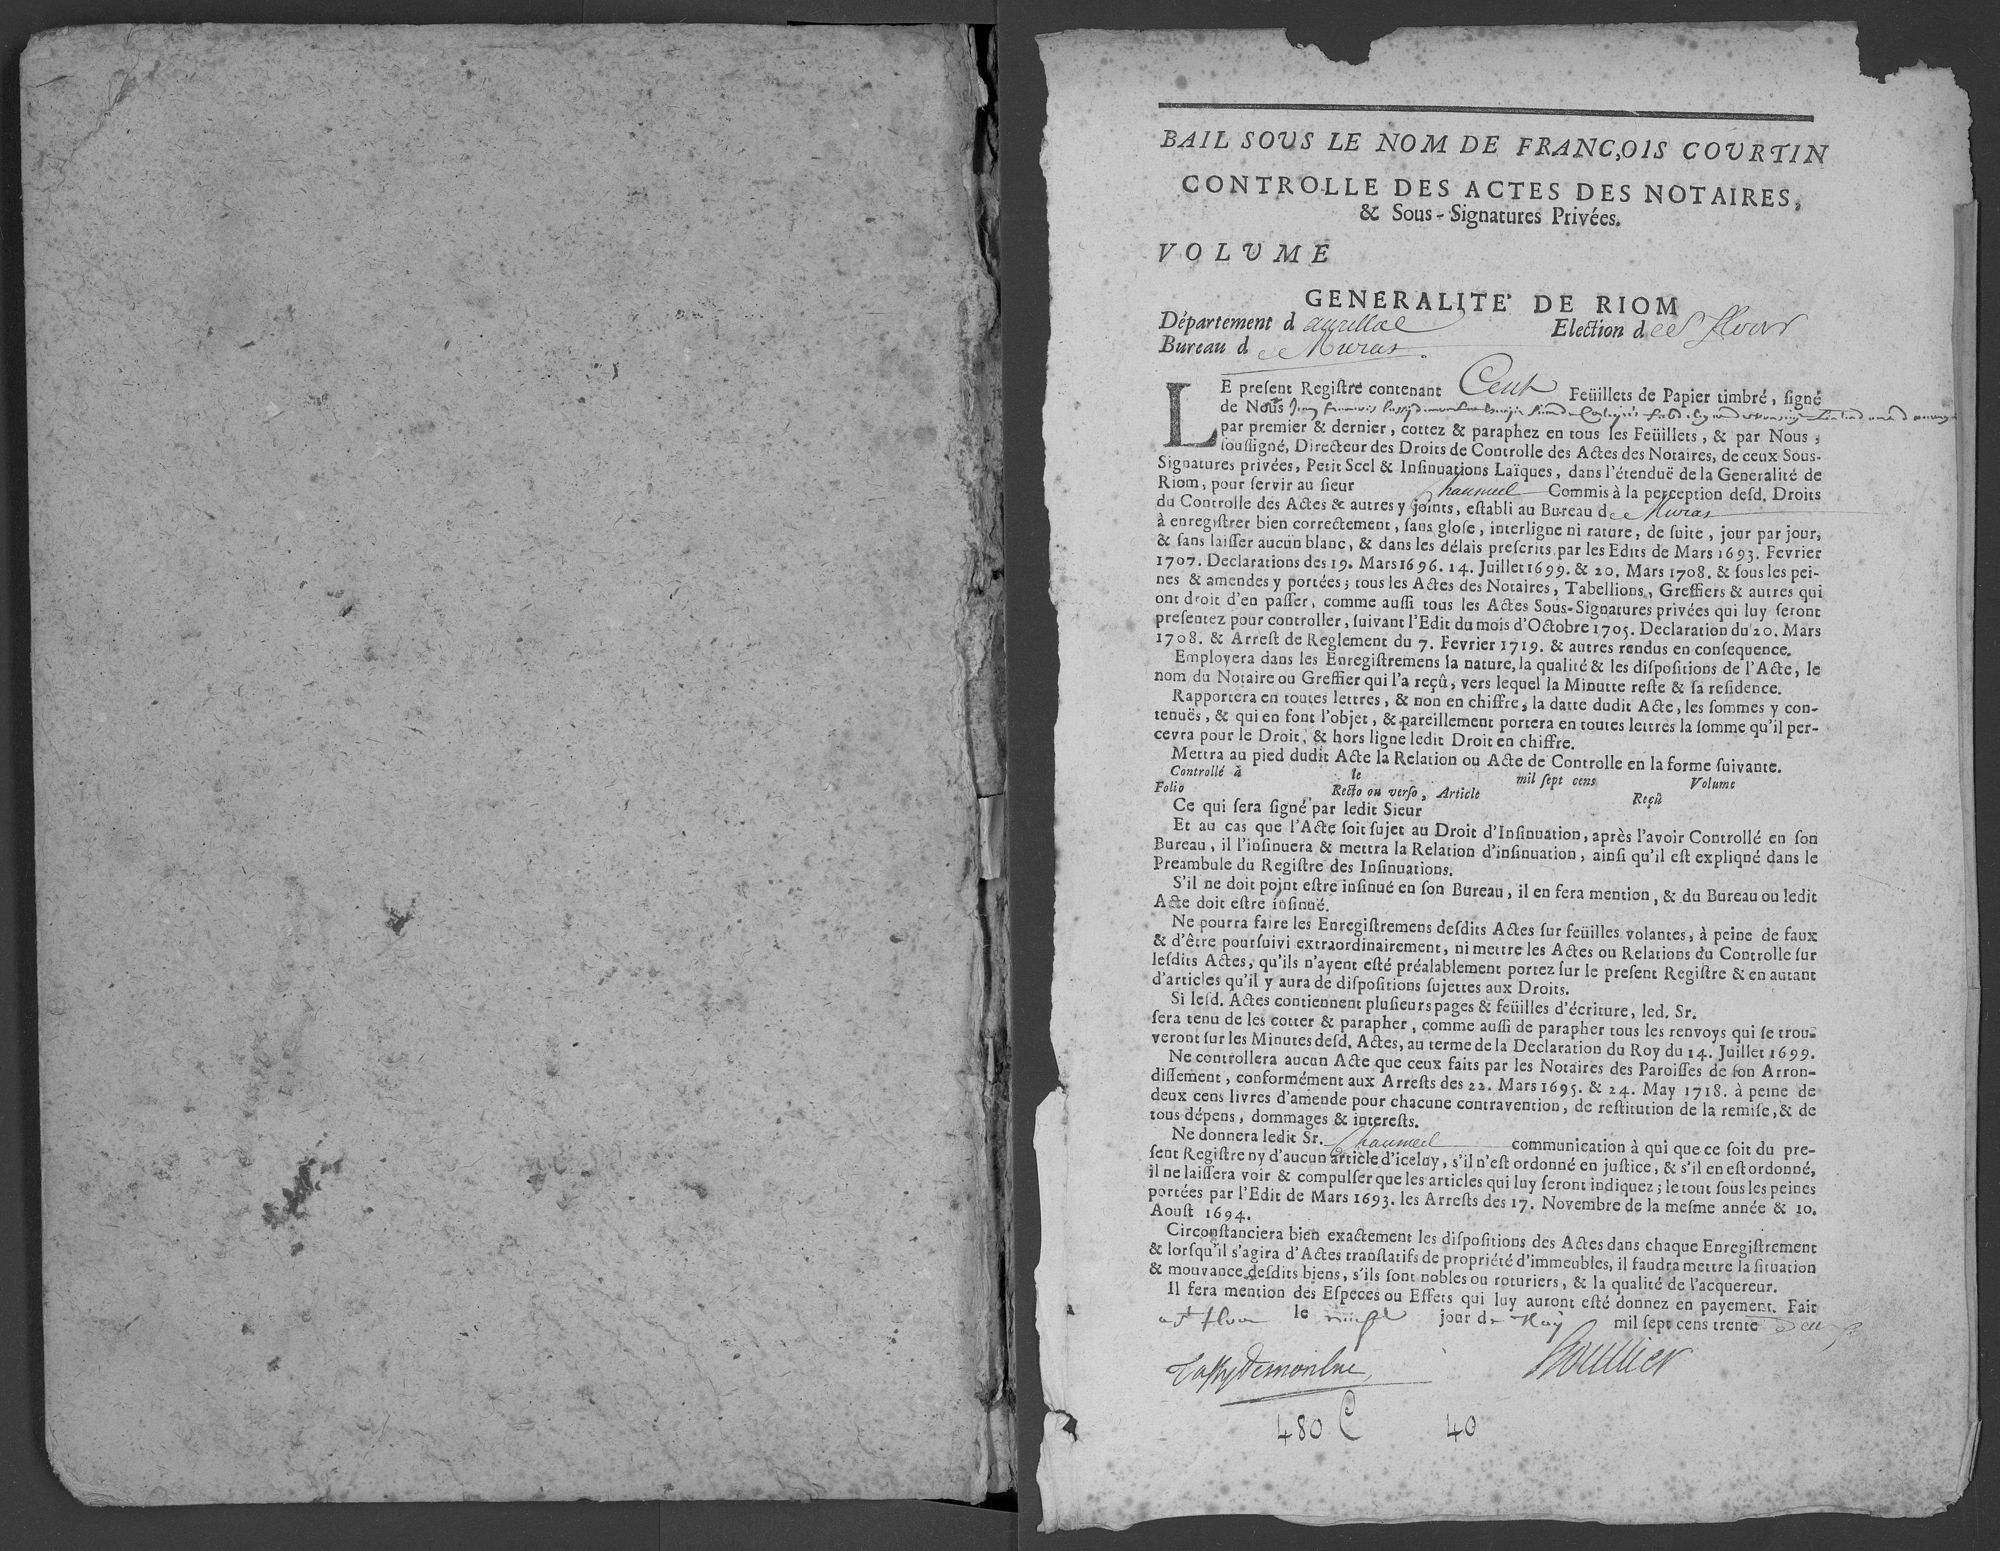 BAIL SOUS LE NOM DE FRANC,OIS COURTIN
CONTROLLE DES ACTES DES NOTAIRES,
& Sous-Signatures Privées.
VOLUME
GENERALITE' DE RIOM
Département d aurillac Election d e St flour
Bureau d e Murat
LE present Registre contenant Cent Feüillets de Papier timbré, signé
de Noûs Jean francois
par premier & dernier, cottez & paraphez en tous les Feüillets, & par Nous,
soussigné, Directeur des Droits de Controlle des Actes des Notaires, de ceux Sous-
Signatures privées, Petit Scel & Insinuations Laïques, dans l'étenduë de la Generalité de
Riom, pour servir au sieur Chaumeil Commis à la perception desd. Droits
du Controlle des Actes & autres y joints, establi au Bureau de Murat
à enregistrer bien correctement, sans glose, interligne ni rature, de suite, jour par jour,
& sans laisser aucun blanc, & dans les délais prescrits par les Edits de Mars 1693. Fevrier
1707. Declarations des 19. Mars 1696. 14. Juillet 1699. & 20. Mars 1708. & sous les pei-
nes & amendes y portées; tous les Actes des Notaires, Tabellions, Greffiers & autres qui
ont droit d'en passer, comme aussi tous les Actes Sous-Signatures privées qui luy seront
presentez pour controller, suivant l'Edit du mois d'Octobre 1705. Declaration du 20. Mars
1708. & Arrest de Reglement du 7. Fevrier 1719. & autres rendus en consequence.
Employera dans les Enregistremens la nature, la qualité & les dispositions de l'Acte, le
nom du Notaire ou Greffier qui l'a reçû, vers lequel la Minutte reste & sa residence.
Rapportera en toutes lettres, & non en chiffre, la datte dudit Acte, les sommes y con-
tenuës, & qui en font l'objet, & pareillement portera en toutes lettres la somme qu'il per-
cevra pour le Droit, & hors ligne ledit Droit en chiffre.
Mettra au pied dudit Acte la Relation ou Acte de Controlle en la forme suivante.
Controllé à le mil sept cens Volume
Folio Recto ou verso, Article Reçû
Ce qui sera signé par ledit Sieur
Et au cas que l'Acte soit sujet au Droit d'Insinuation, après l'avoir Controllé en son
Bureau, il l'insinuera & mettra la Relation d'insinuation, ainsi qu'il est expliqué dans le
Preambule du Registre des Insinuations.
S'il ne doit point estre insinué en son Bureau, il en fera mention, & du Bureau ou ledit
Acte doit estre insinué.
Ne pourra faire les Enregistremens desdits Actes sur feüilles volantes, à peine de faux
& d'être poursuivi extraordinairement, ni mettre les Actes ou Relations du Controlle sur
lesdits Actes, qu'ils n'ayent esté préalablement portez sur le present Registre & en autant
d'articles qu'il y aura de dispositions sujettes aux Droits.
Si lesd. Actes contiennent plusieurs pages & feüilles d'écriture, led. Sr.
sera tenu de les cotter & parapher, comme aussi de parapher tous les renvoys qui se trou-
veront sur les Minutes desd. Actes, au terme de la Declaration du Roy du 14. Juillet 1699.
Ne controllera aucun Acte que ceux faits par les Notaires des Paroisses de son Arron-
dissement, conformément aux Arrests des 22. Mars 1695. & 24. May 1718. à peine de
deux cens livres d'amende pour chacune contravention, de restitution de la remise, & de
tous dépens, dommages & interests.
Ne donnera ledit Sr. Chaumeil communication à qui que ce soit du pre-
sent Registre ny d'aucun article d'iceluy, s'il n'est ordonné en justice, & s'il en est ordonné,
il ne laissera voir & compulser que les articles qui luy seront indiquez; le tout sous les peines
portées par l'Edit de Mars 1693. les Arrests des 17. Novembre de la mesme année & 10.
Aoust 1694.
Circonstanciera bien exactement les dispositions des Actes dans chaque Enregistrement
& lorsqu'il s'agira d'Actes translatifs de propriété d'immeubles, il faudra mettre la situation
& mouvance desdits biens, s'ils sont nobles ou roturiers, & la qualité de l'acquereur.
Il fera mention des Especes ou Effets qui luy auront esté donnez en payement. Fait
a St flour le vingt jour de May mil sept cens trente deux
Soullier
480 C 40